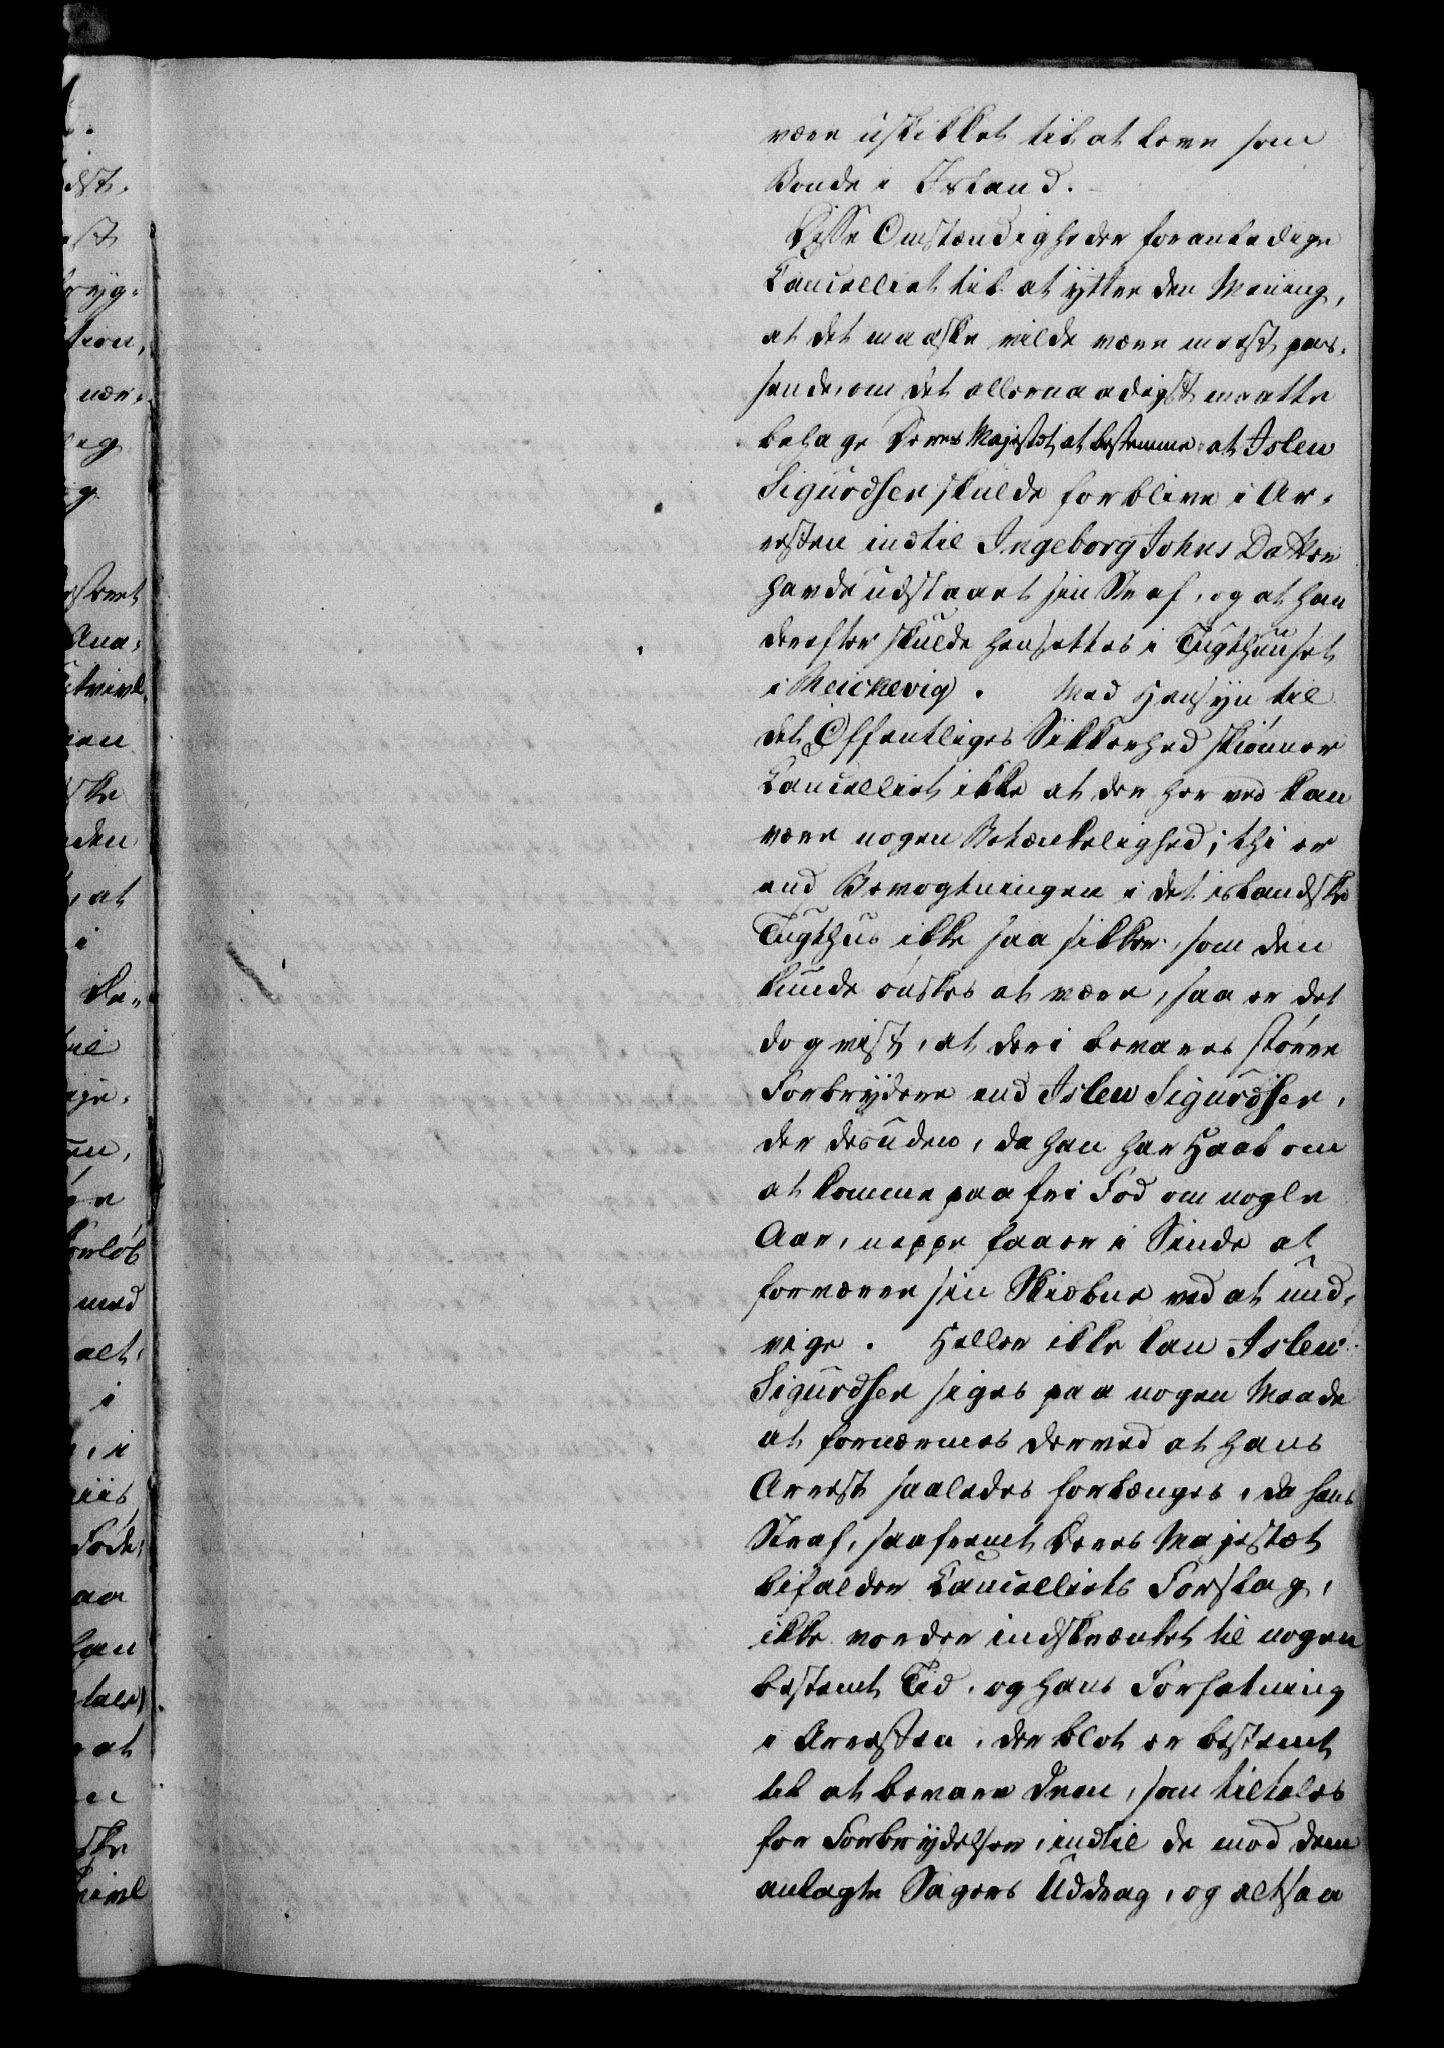 være uskikket til at leve som
Bonde i Island.
Disse Omstændigheder foranledige
Cancelliet til at yttre den Mening,
at det maaske vilde være meest pas-
sende, om det allernaadigst maatte
behage Deres Majestæt at bestemme, at Isleu
Sigurdsen skulde forblive i Ar-
resten indtil Ingeborg Johns Datter
havde udstaaet sin Straf, og at han
derefter skulde hensættes i Tugthuuset
i Reickevig. Med Hensyn til
det Offentliges Sikkerhed skiønner
Cancelliet ikke at der herved kan
være nogen Betænkelighed; thi er
end Bevogtningen i det islandske
Tugthus ikke saa sikker, som den
kunde ønskes at være, saa er det
dog vist, at deri bevares større
Forbrydere end Isleu Sigurdsen,
der desuden, da han har Haab om
at komme paa fri Fod om nogle
Aar, neppe faaer i Sinde at
forværre sin Skiæbne ved at und-
vige. Heller ikke kan Isleu
Sigurdsen siges paa nogen Maade
at fornærmes derved at hans
Arrest saaledes forlænges, da hans
Straf, saafremt Deres Majestæt
bifalder Cancelliets Forslag,
ikke vorder indskrænket til nogen
bestemt Tid, og hans Forsætning
i Arresten, der blot er bestemt
til at bevare dem, som tiltales
for Forbrydelser, indtil de mod dem
anlagte Sagers Uddrag, og altsaa